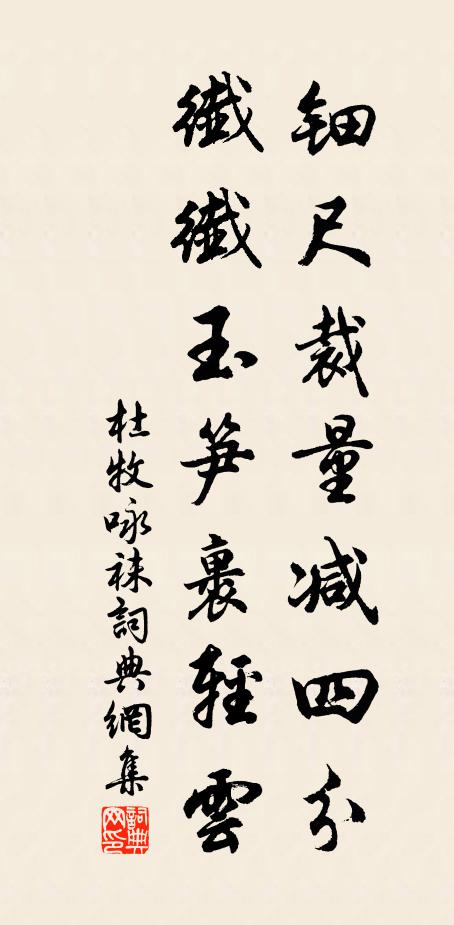 鈿尺裁量减四分
纖纖玉笋裹輕雲
杜牧咏袜詞典網集
詞典網印